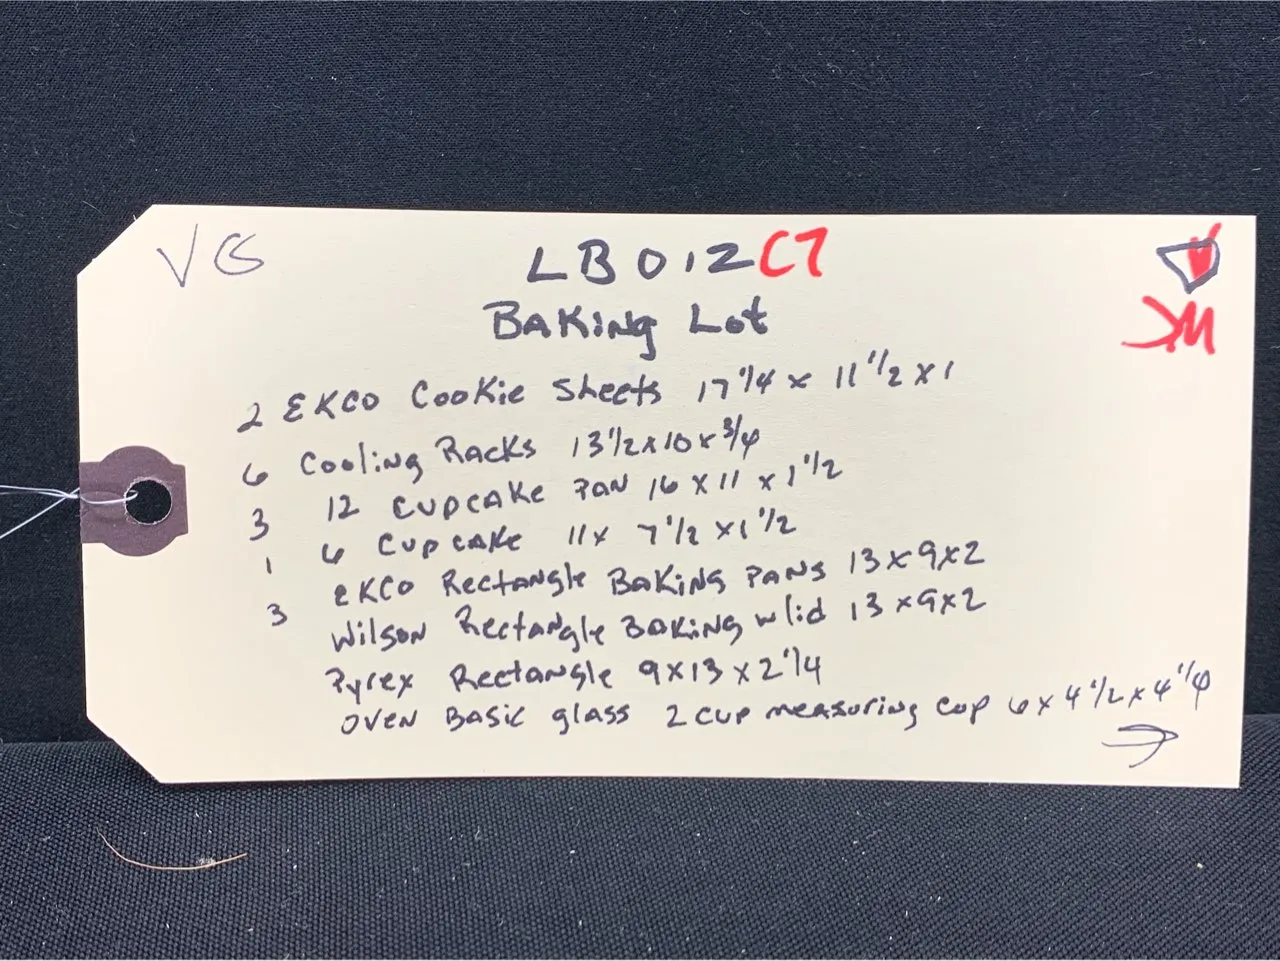 VG
LB012C7
BAKiNg Lot
2 EKCO Cookie Sheets 17 1/4 x 11 1/2 x 1
6 Cooling Racks 13 1/2 x 10 x 3/4
3 12 CupcAke PAN 16 x 11 x 1 1/2
1 6 CupcAke 11x 7 1/2 x 1 1/2
3 EKCO Rectangle BAKiNg PANS 13 x 9 x 2
Wilson Rectangle BAKiNg w lid 13 x 9 x 2
Pyrex Rectangle 9 x 13 x 2 1/4
OVEN BASic glass 2 cup measuring cup 6 x 4 1/2 x 4 1/4